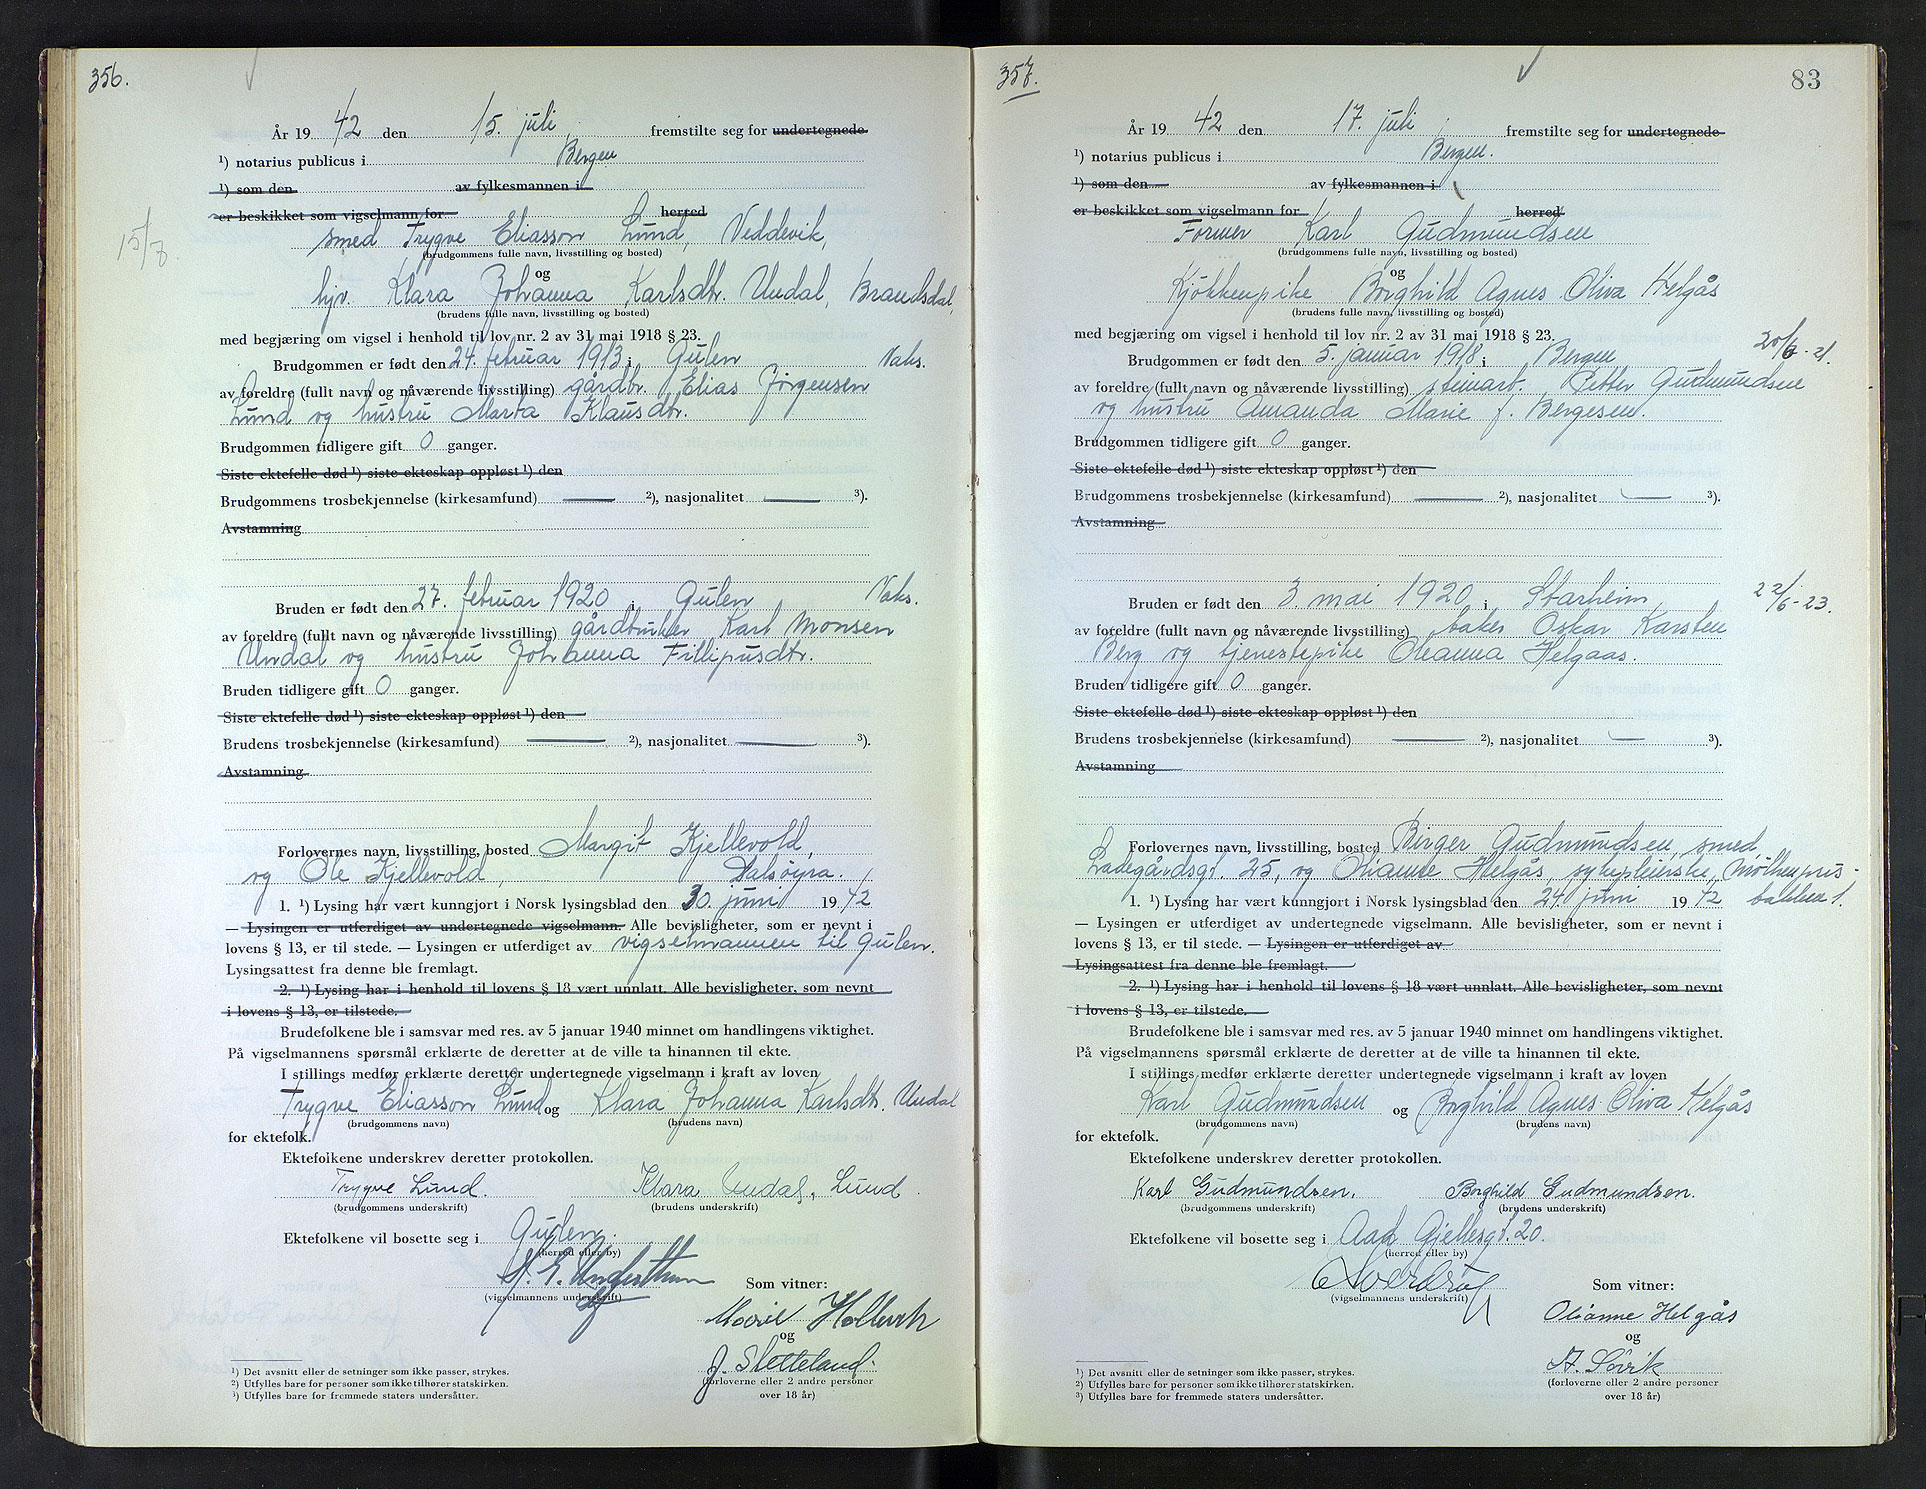 356.
År 19 42 den 15. juli, fremstilte seg for undertegnede
¹) notarius publicus i Bergen
¹) som den av fylkesmannen i
er beskikket som vigselmann for herred
15/7
smed Trygve Eliasson Lund, Veddevik,
(brudgommens fulle navn, livsstilling og bosted)
og
hjv. Klara Johanna Karlsdtr. Undal, Brandsdal,
(brudens fulle navn, livsstilling og bosted)
med begjæring om vigsel i henhold til lov nr. 2 av 31 mai 1918 § 23.
Brudgommen er født den 24. februar 1913 i Gulen Vaks.
av foreldre (fullt navn og nåværende livsstilling) gårdbr. Elias Jørgensen
Lund og hustru Marta Klausdtr.
Brudgommen tidligere gift 0 ganger.
Siste ektefelle død ¹) siste ekteskap oppløst ¹) den
Brudgommens trosbekjennelse (kirkesamfund) — ²), nasjonalitet — ³).
Avstamning
Bruden er født den 27. februar 1920 i Gulen Vaks.
av foreldre (fullt navn og nåværende livsstilling) gårdbruker Karl Monsen
Undal og hustru Johanna Fillipusdtr.
Bruden tidligere gift 0 ganger.
Siste ektefelle død ¹) siste ekteskap oppløst ¹) den
Brudens trosbekjennelse (kirkesamfund) — ²), nasjonalitet — ³).
Avstamning
Forlovernes navn, livsstilling, bosted Margit Kjellevold,
og Ole Kjellevold, Dalsøyra.
1. ¹) Lysing har vært kunngjort i Norsk lysingsblad den 30. juni 19 42
— Lysingen er utferdiget av undertegnede vigselmann. Alle bevisligheter, som er nevnt i
lovens § 13, er til stede. — Lysingen er utferdiget av vigselmannen til Gulen.
Lysingsattest fra denne ble fremlagt.
2. ¹) Lysing har i henhold til lovens § 18 vært unnlatt. Alle bevisligheter, som nevnt
i lovens § 13, er tilstede.
Brudefolkene ble i samsvar med res. av 5 januar 1940 minnet om handlingens viktighet.
På vigselmannens spørsmål erklærte de deretter at de ville ta hinannen til ekte.
I stillings medfør erklærte deretter undertegnede vigselmann i kraft av loven
Trygve Eliasson Lund og Klara Johanna Karlsdtr. Undal
(brudgommens navn) (brudens navn)
for ektefolk.
Ektefolkene underskrev deretter protokollen.
Trygve Lund. Klara Undal, Lund
(brudgommens underskrift) (brudens underskrift)
Ektefolkene vil bosette seg i Gulen.
(herred eller by)
(vigselmannens underskrift) Som vitner:
og
J. Sletteland.
(forloverne eller 2 andre personer
over 18 år)
¹) Det avsnitt eller de setninger som ikke passer, strykes.
²) Utfylles bare for personer som ikke tilhører statskirken.
³) Utfylles bare for fremmede staters undersåtter.
357.
83
År 19 42 den 17. juli, fremstilte seg for undertegnede
¹) notarius publicus i Bergen.
¹) som den av fylkesmannen i
er beskikket som vigselmann for herred
Former Karl Gudmundsen
(brudgommens fulle navn, livsstilling og bosted)
og
Kjøkkenpike Borghild Agnes Oliva Helgås
(brudens fulle navn, livsstilling og bosted)
med begjæring om vigsel i henhold til lov nr. 2 av 31 mai 1918 § 23.
Brudgommen er født den 5. januar 1918 i Bergen 20/6-21.
av foreldre (fullt navn og nåværende livsstilling) steinarb. Petter Gudmundsen
og hustru Amanda Marie f. Bergesen.
Brudgommen tidligere gift 0 ganger.
Siste ektefelle død ¹) siste ekteskap oppløst ¹) den
Brudgommens trosbekjennelse (kirkesamfund) — ²), nasjonalitet — ³).
Avstamning
Bruden er født den 3. mai 1920 i Starheim 22/6-23.
av foreldre (fullt navn og nåværende livsstilling) baker Oskar Karsten
Berg og tjenestepike Oleanna Helgaas.
Bruden tidligere gift 0 ganger.
Siste ektefelle død ¹) siste ekteskap oppløst ¹) den
Brudens trosbekjennelse (kirkesamfund) — ²), nasjonalitet — ³).
Avstamning
Forlovernes navn, livsstilling, bosted Birger Gudmundsen, smed
Ladegårdsgt. 25, og Olianne Helgås, sykepleierske, Møllenpris-
1. ¹) Lysing har vært kunngjort i Norsk lysingsblad den 24. juni 19 42 bakken 1.
— Lysingen er utferdiget av undertegnede vigselmann. Alle bevisligheter, som er nevnt i
lovens § 13, er til stede. — Lysingen er utferdiget av
Lysingsattest fra denne ble fremlagt.
2. ¹) Lysing har i henhold til lovens § 18 vært unnlatt. Alle bevisligheter, som nevnt
i lovens § 13, er tilstede.
Brudefolkene ble i samsvar med res. av 5 januar 1940 minnet om handlingens viktighet.
På vigselmannens spørsmål erklærte de deretter at de ville ta hinannen til ekte.
I stillings medfør erklærte deretter undertegnede vigselmann i kraft av loven
Karl Gudmundsen og Borghild Agnes Oliva Helgås
(brudgommens navn) (brudens navn)
for ektefolk.
Ektefolkene underskrev deretter protokollen.
Karl Gudmundsen. Borghild Gudmundsen.
(brudgommens underskrift) (brudens underskrift)
Ektefolkene vil bosette seg i Aad Gjellesgt. 20.
(herred eller by)
(vigselmannens underskrift) Som vitner:
Olianne Helgås
og
A. Søvik
(forloverne eller 2 andre personer
over 18 år)
¹) Det avsnitt eller de setninger som ikke passer, strykes.
²) Utfylles bare for personer som ikke tilhører statskirken.
³) Utfylles bare for fremmede staters undersåtter.